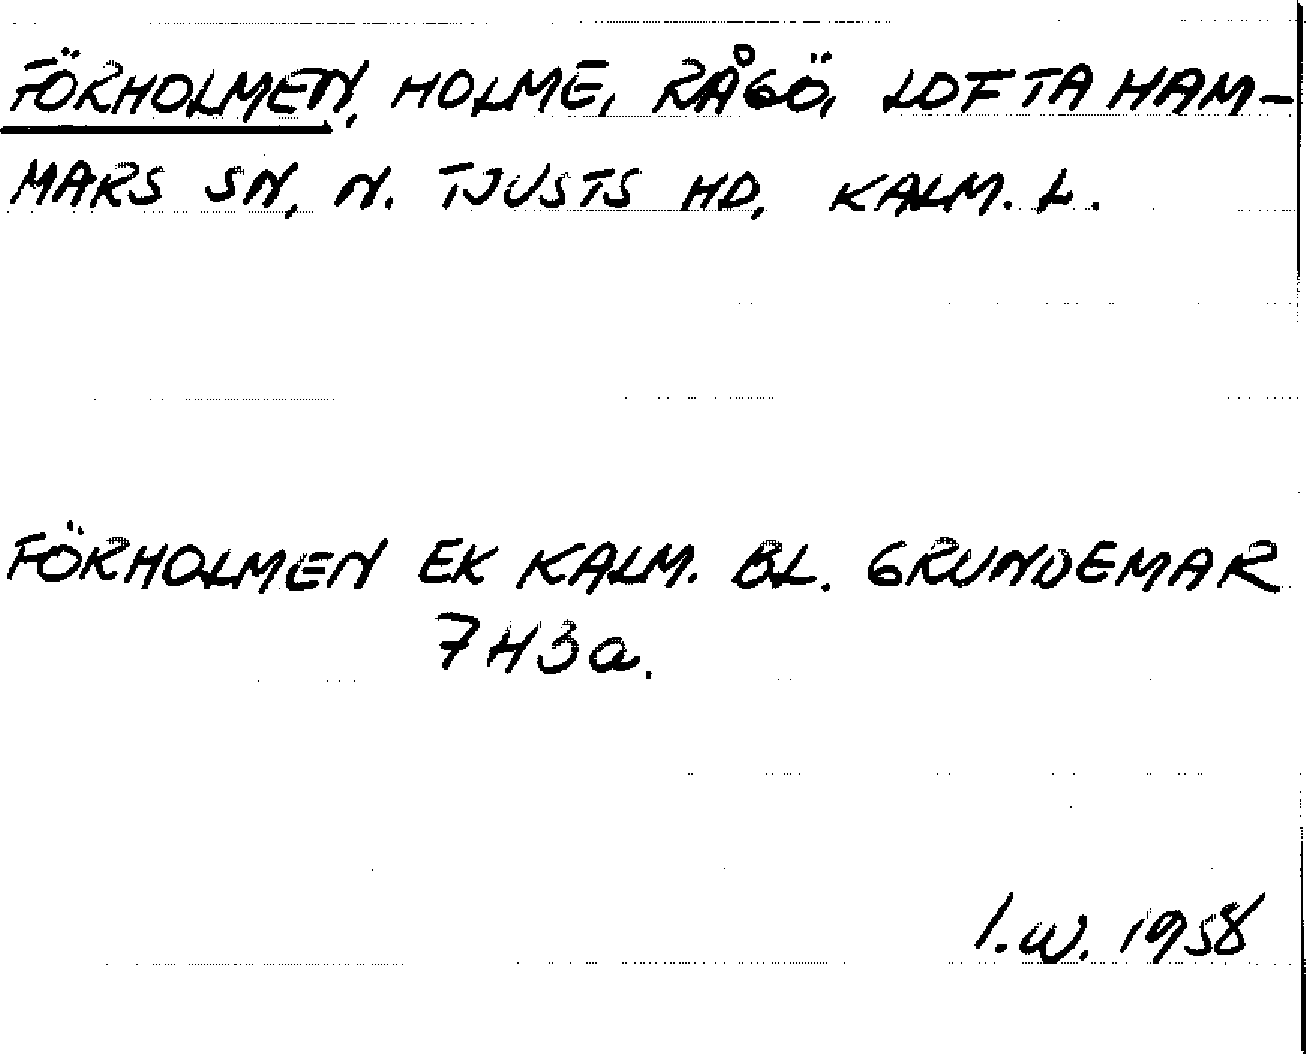 FÖRHOLMEN, HOLME, RÅGÖ, LOFTAHAM-
MARS SN, N. TJUSTS HD, KALM. L.
FÖRHOLMEN EK KALM. BL. GRUNDEMAR
7H3a.
I.W. 1958